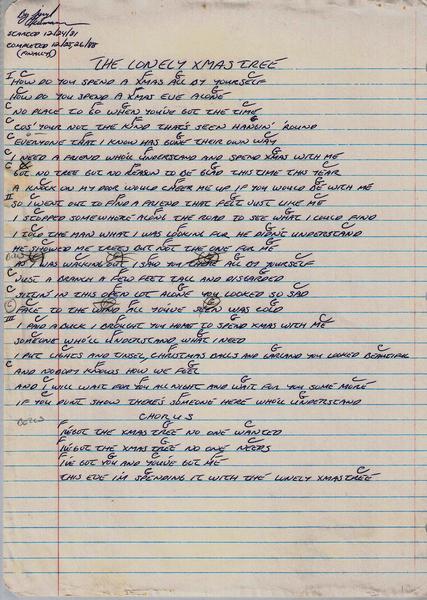 By
STARTED 12/24/81
COMPLETED 12/25,26/88
(FINALLY)
THE LONELY XMAS TREE
I C F G C
HOW DO YOU SPEND A XMAS ALL BY YOURSELF
HOW DO YOU SPEND A XMAS EVE ALONE
NO PLACE TO GO WHEN YOU'VE GOT THE TIME
COS' YOUR NOT THE KIND THAT'S SEEN HANGIN' 'ROUND
EVERYONE THAT I KNOW HAS GONE THEIR OWN WAY
I NEED A FRIEND WHO'LL UNDERSTAND AND SPEND XMAS WITH ME
GOT NO TREE GOT NO REASON TO BE GLAD THIS TIME THIS YEAR
A KNOCK ON MY DOOR WOULD CHEER ME UP IF YOU WOULD BE WITH ME
II
SO I WENT OUT TO FIND A FRIEND THAT FELT JUST LIKE ME
I STOPPED SOMEWHERE ALONG THE ROAD TO SEE WHAT I COULD FIND
I TOLD THE MAN WHAT I WAS LOOKING FOR HE DIDN'T UNDERSTAND
HE SHOWED ME TREES BUT NOT THE ONE FOR ME
AS I WAS WALKING OUT I SAW YOU THERE ALL BY YOURSELF
JUST A BRANCH A FEW FEET TALL AND DISCARDED
SITTIN' IN THIS OPEN LOT ALONE YOU LOOKED SO SAD
FACE TO THE WIND ALL YOU'VE SEEN WAS COLD
III
I PAID A BUCK I BROUGHT YOU HOME TO SPEND XMAS WITH ME
SOMEONE WHO'LL UNDERSTAND WHAT I NEED
I PUT LIGHTS AND TINSEL, CHRISTMAS BALLS AND GARLAND YOU LOOKED BEAUTIFUL
AND NOBODY KNOWS HOW WE FEEL
AND I WILL WAIT FOR YOU ALL NIGHT AND WAIT FOR YOU SOME MORE
IF YOU DON'T SHOW THERE'S SOMEONE HERE WHO'LL UNDERSTAND
CHORUS
F G C
I'VE GOT THE XMAS TREE NO ONE WANTED
F G C
I'VE GOT THE XMAS TREE NO ONE NEEDS
F G C
I'VE GOT YOU AND YOU'VE GOT ME
THIS EVE I'M SPENDING IT WITH THE LONELY XMAS TREE